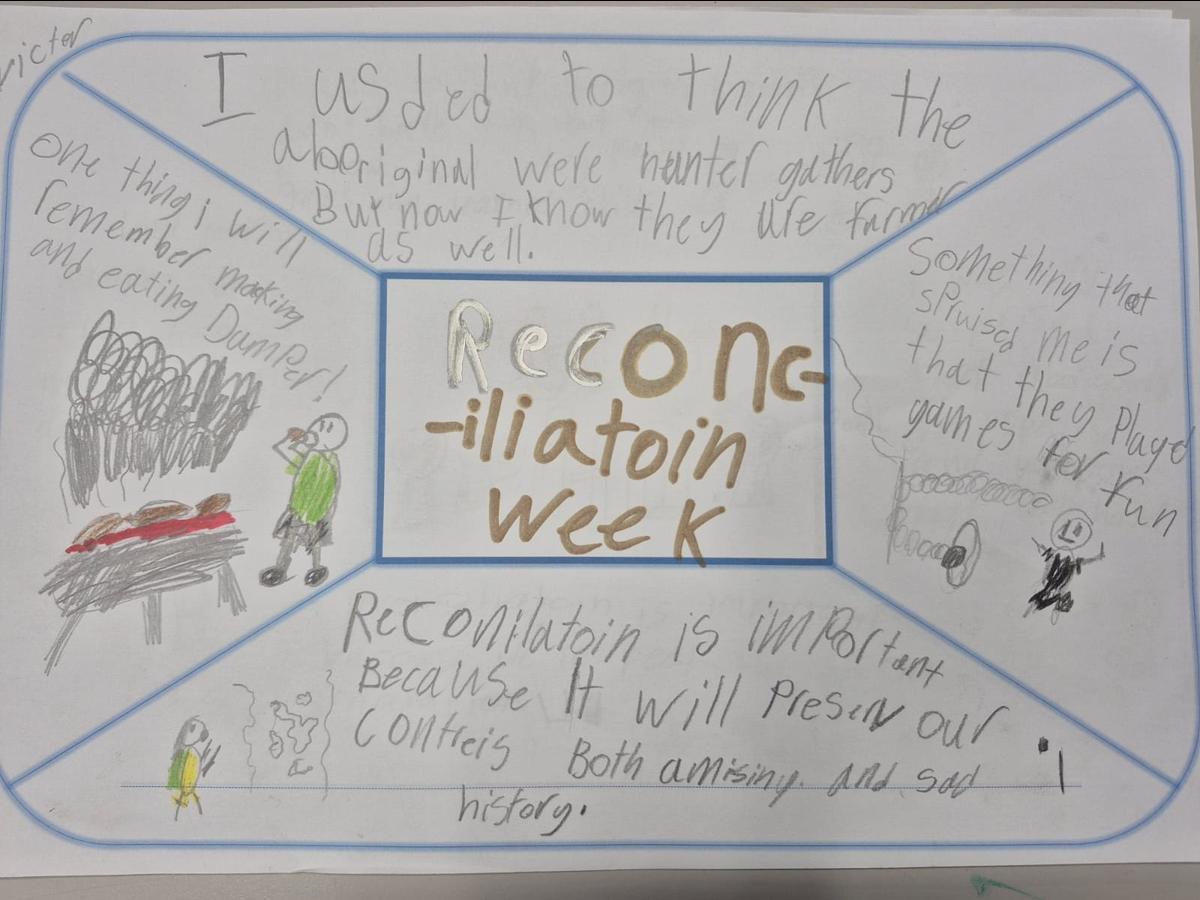 victor
I usded to think the
aboriginal were hunter gathers
But now I know they are farmer
as well.
one thing i will
remember making
and eating Damper!
Reconc-
-iliatoin
week
Something that
sPruisd me is
that they Played
games for fun
Reconilatoin is imPortant
Because It will Preserv our
contreis Both amising. and sad
history.